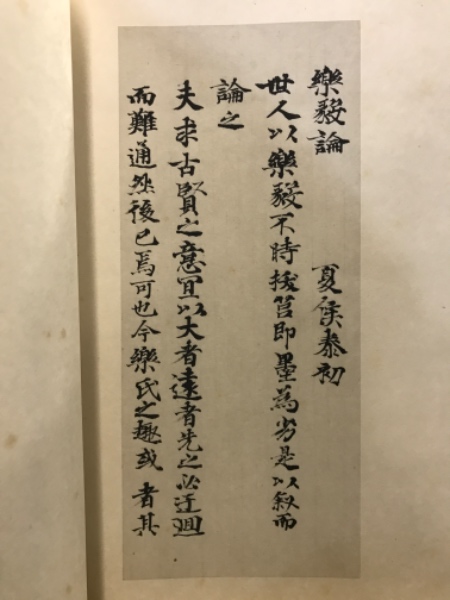 樂毅論　夏侯泰初
世人以樂毅不時拔莒即墨為劣是以叙而
論之
夫求古賢之意宜以大者遠者先之必迂迴
而難通然後已焉可也今樂氏之趣或者其